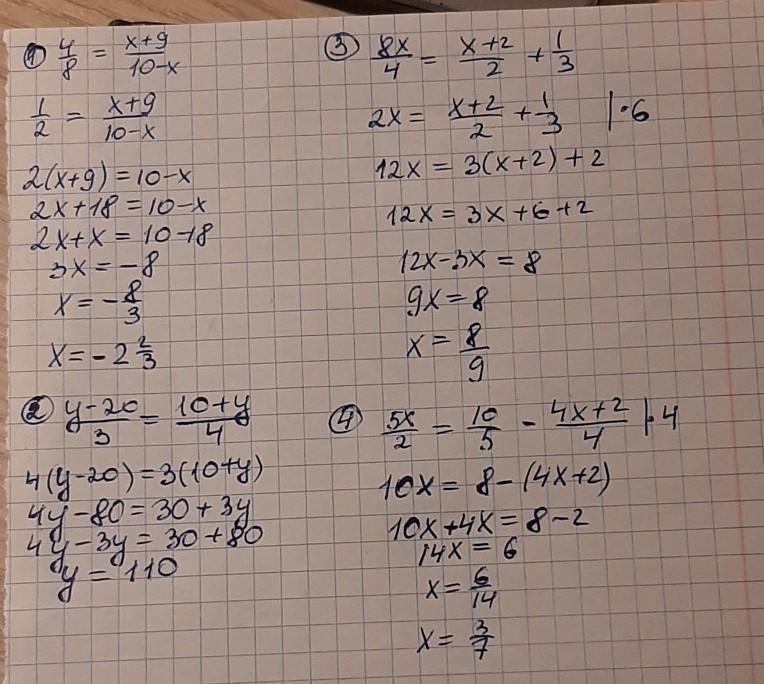 ① 4/8 = (x+9)/(10-x)
1/2 = (x+9)/(10-x)
2(x+9) = 10-x
2x+18 = 10-x
2x+x = 10-18
3x = -8
x = -8/3
x = -2 2/3
② (y-20)/3 = (10+y)/4
4(y-20) = 3(10+y)
4y-80 = 30+3y
4y-3y = 30+80
y = 110
③ 8x/4 = (x+2)/2 + 1/3
2x = (x+2)/2 + 1/3 |·6
12x = 3(x+2)+2
12x = 3x+6+2
12x-3x = 8
9x = 8
x = 8/9
④ 5x/2 = 10/5 - (4x+2)/4 |·4
10x = 8-(4x+2)
10x+4x = 8-2
14x = 6
x = 6/14
x = 3/7